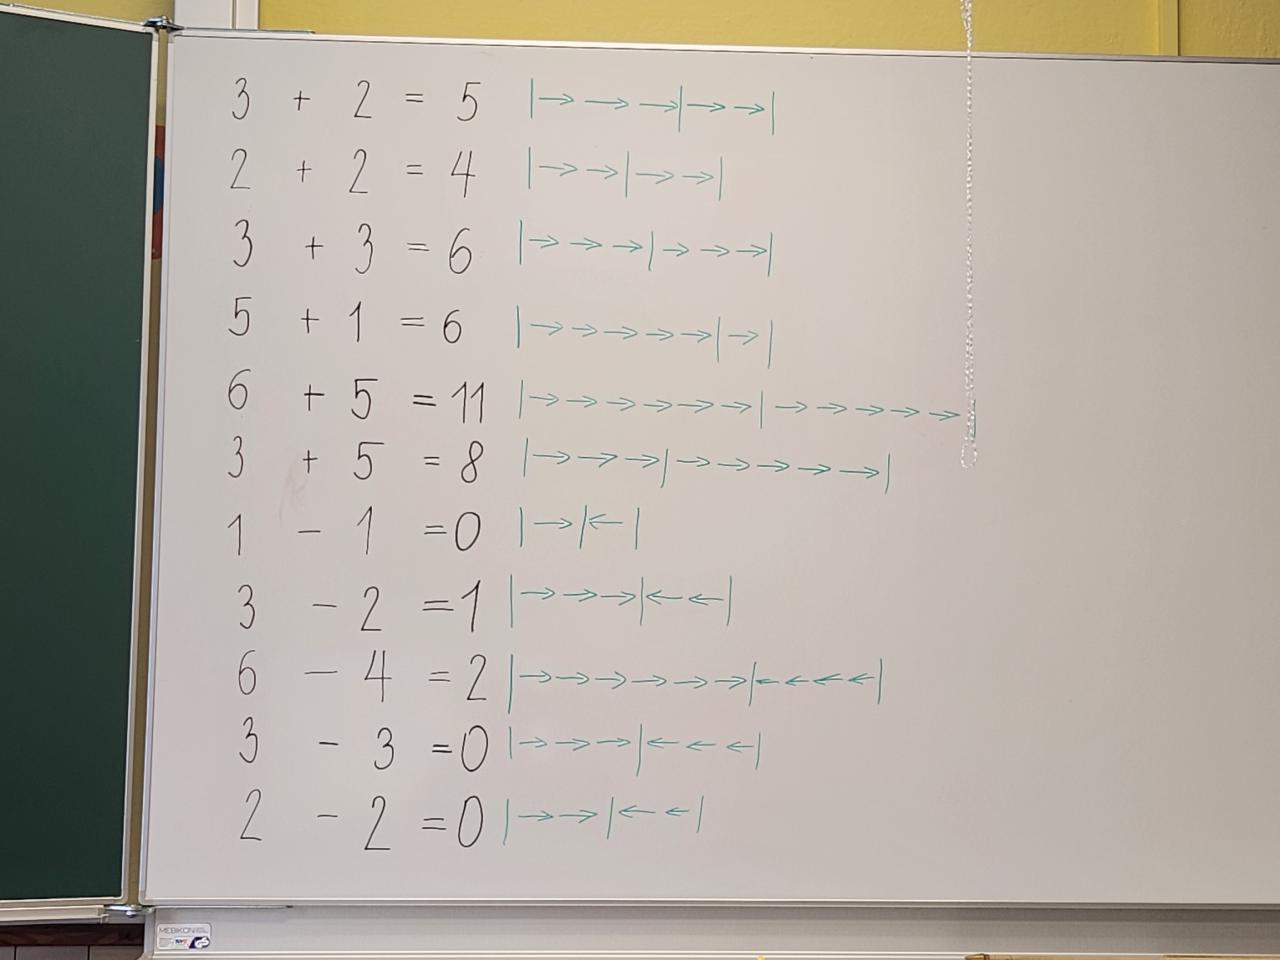 3 + 2 = 5 |→→→|→→|
2 + 2 = 4 |→→|→→|
3 + 3 = 6 |→→→|→→→|
5 + 1 = 6 |→→→→→|→|
6 + 5 = 11 |→→→→→→|→→→→→|
3 + 5 = 8 |→→→|→→→→→|
1 - 1 = 0 |→|←|
3 - 2 = 1 |→→→|←←|
6 - 4 = 2 |→→→→→→|←←←←|
3 - 3 = 0 |→→→|←←←|
2 - 2 = 0 |→→|←←|
MEBIKON